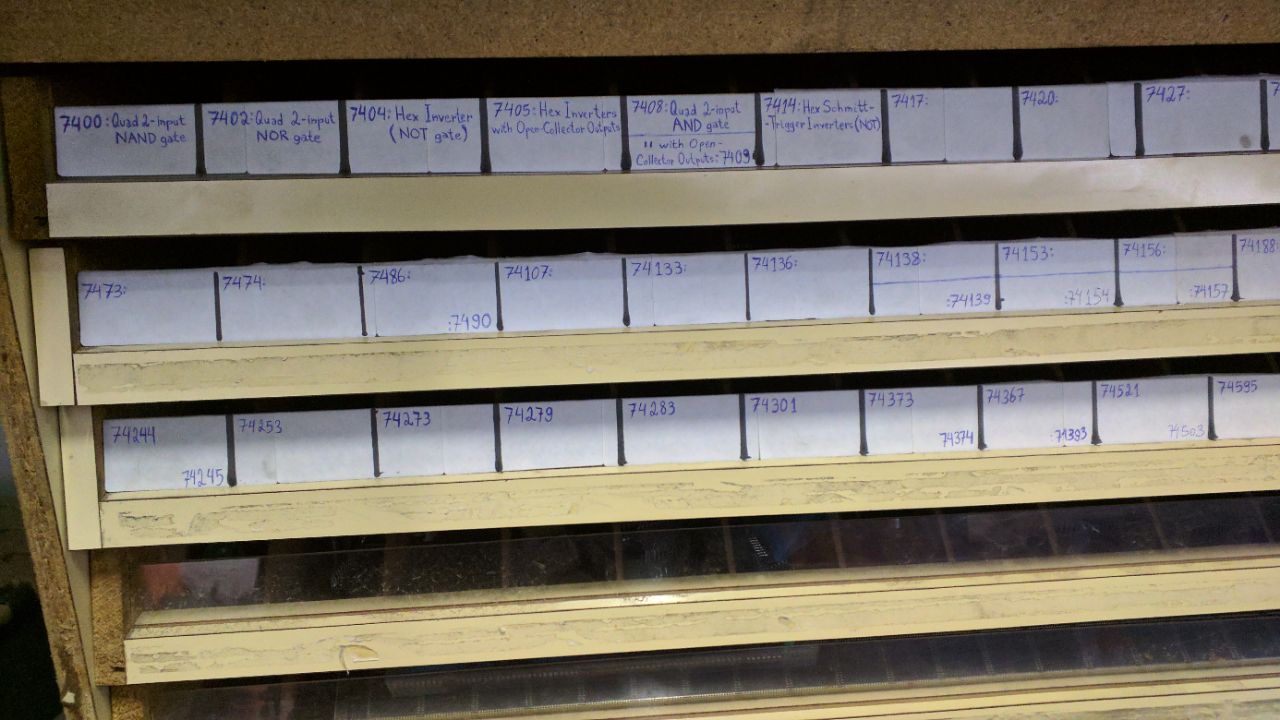 7400: Quad 2-input
NAND gate
7402: Quad 2-input
NOR gate
7404: Hex Inverter
(NOT gate)
7405: Hex Inverters
with Open-Collector Outputs
7408: Quad 2-input
AND gate
" with Open-
Collector Outputs: 7409
7414: Hex Schmitt-
-Trigger Inverters (NOT)
7417:
7420:
7427:
7473:
7474:
7486:
:7490
74107:
74133:
74136:
74138:
:74139
74153:
:74154
74156:
:74157
74188
74244
74245
74253
74273
74279
74283
74301
74373
74374
74367
:74393
74521
74503
74595